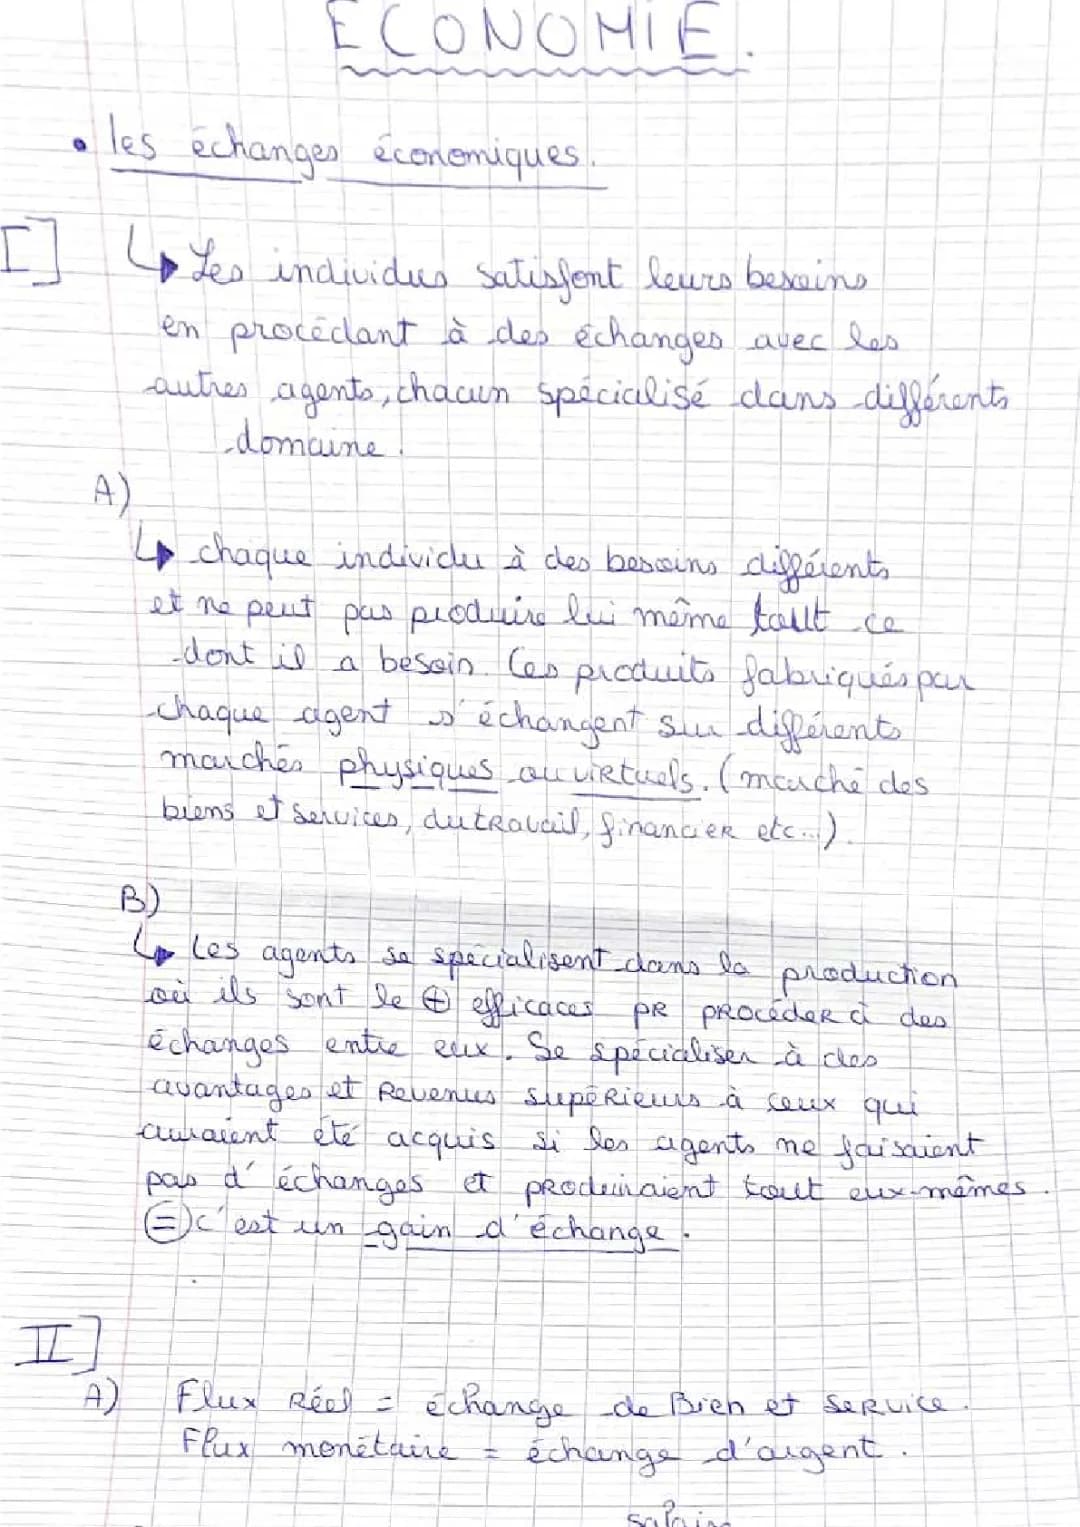 ECONOMIE.
• les échanges économiques.
I] ↳ Les individus satisfont leurs besoins
en procédant à des échanges avec les
autres agents, chacun spécialisé dans différents
domaine.
A)
↳ chaque individu à des besoins différents
et ne peut pas produire lui même tout ce
dont il a besoin. Ces produits fabriqués par
chaque agent s'échangent sur différents
marchés physiques ou virtuels. (marché des
biens et services, du travail, financier etc...).
B)
↳ Les agents se spécialisent dans la production
où ils sont le ⊕ efficaces pr procéder à des
échanges entre eux. Se spécialiser à des
avantages et Revenus supérieurs à ceux qui
auraient été acquis si les agents ne faisaient
pas d'échanges et produiraient tout eux-mêmes.
⊜ c'est un gain d'échange.
II]
A) Flux Réel = échange de Bien et Service.
Flux monétaire = échange d'argent.
salaire